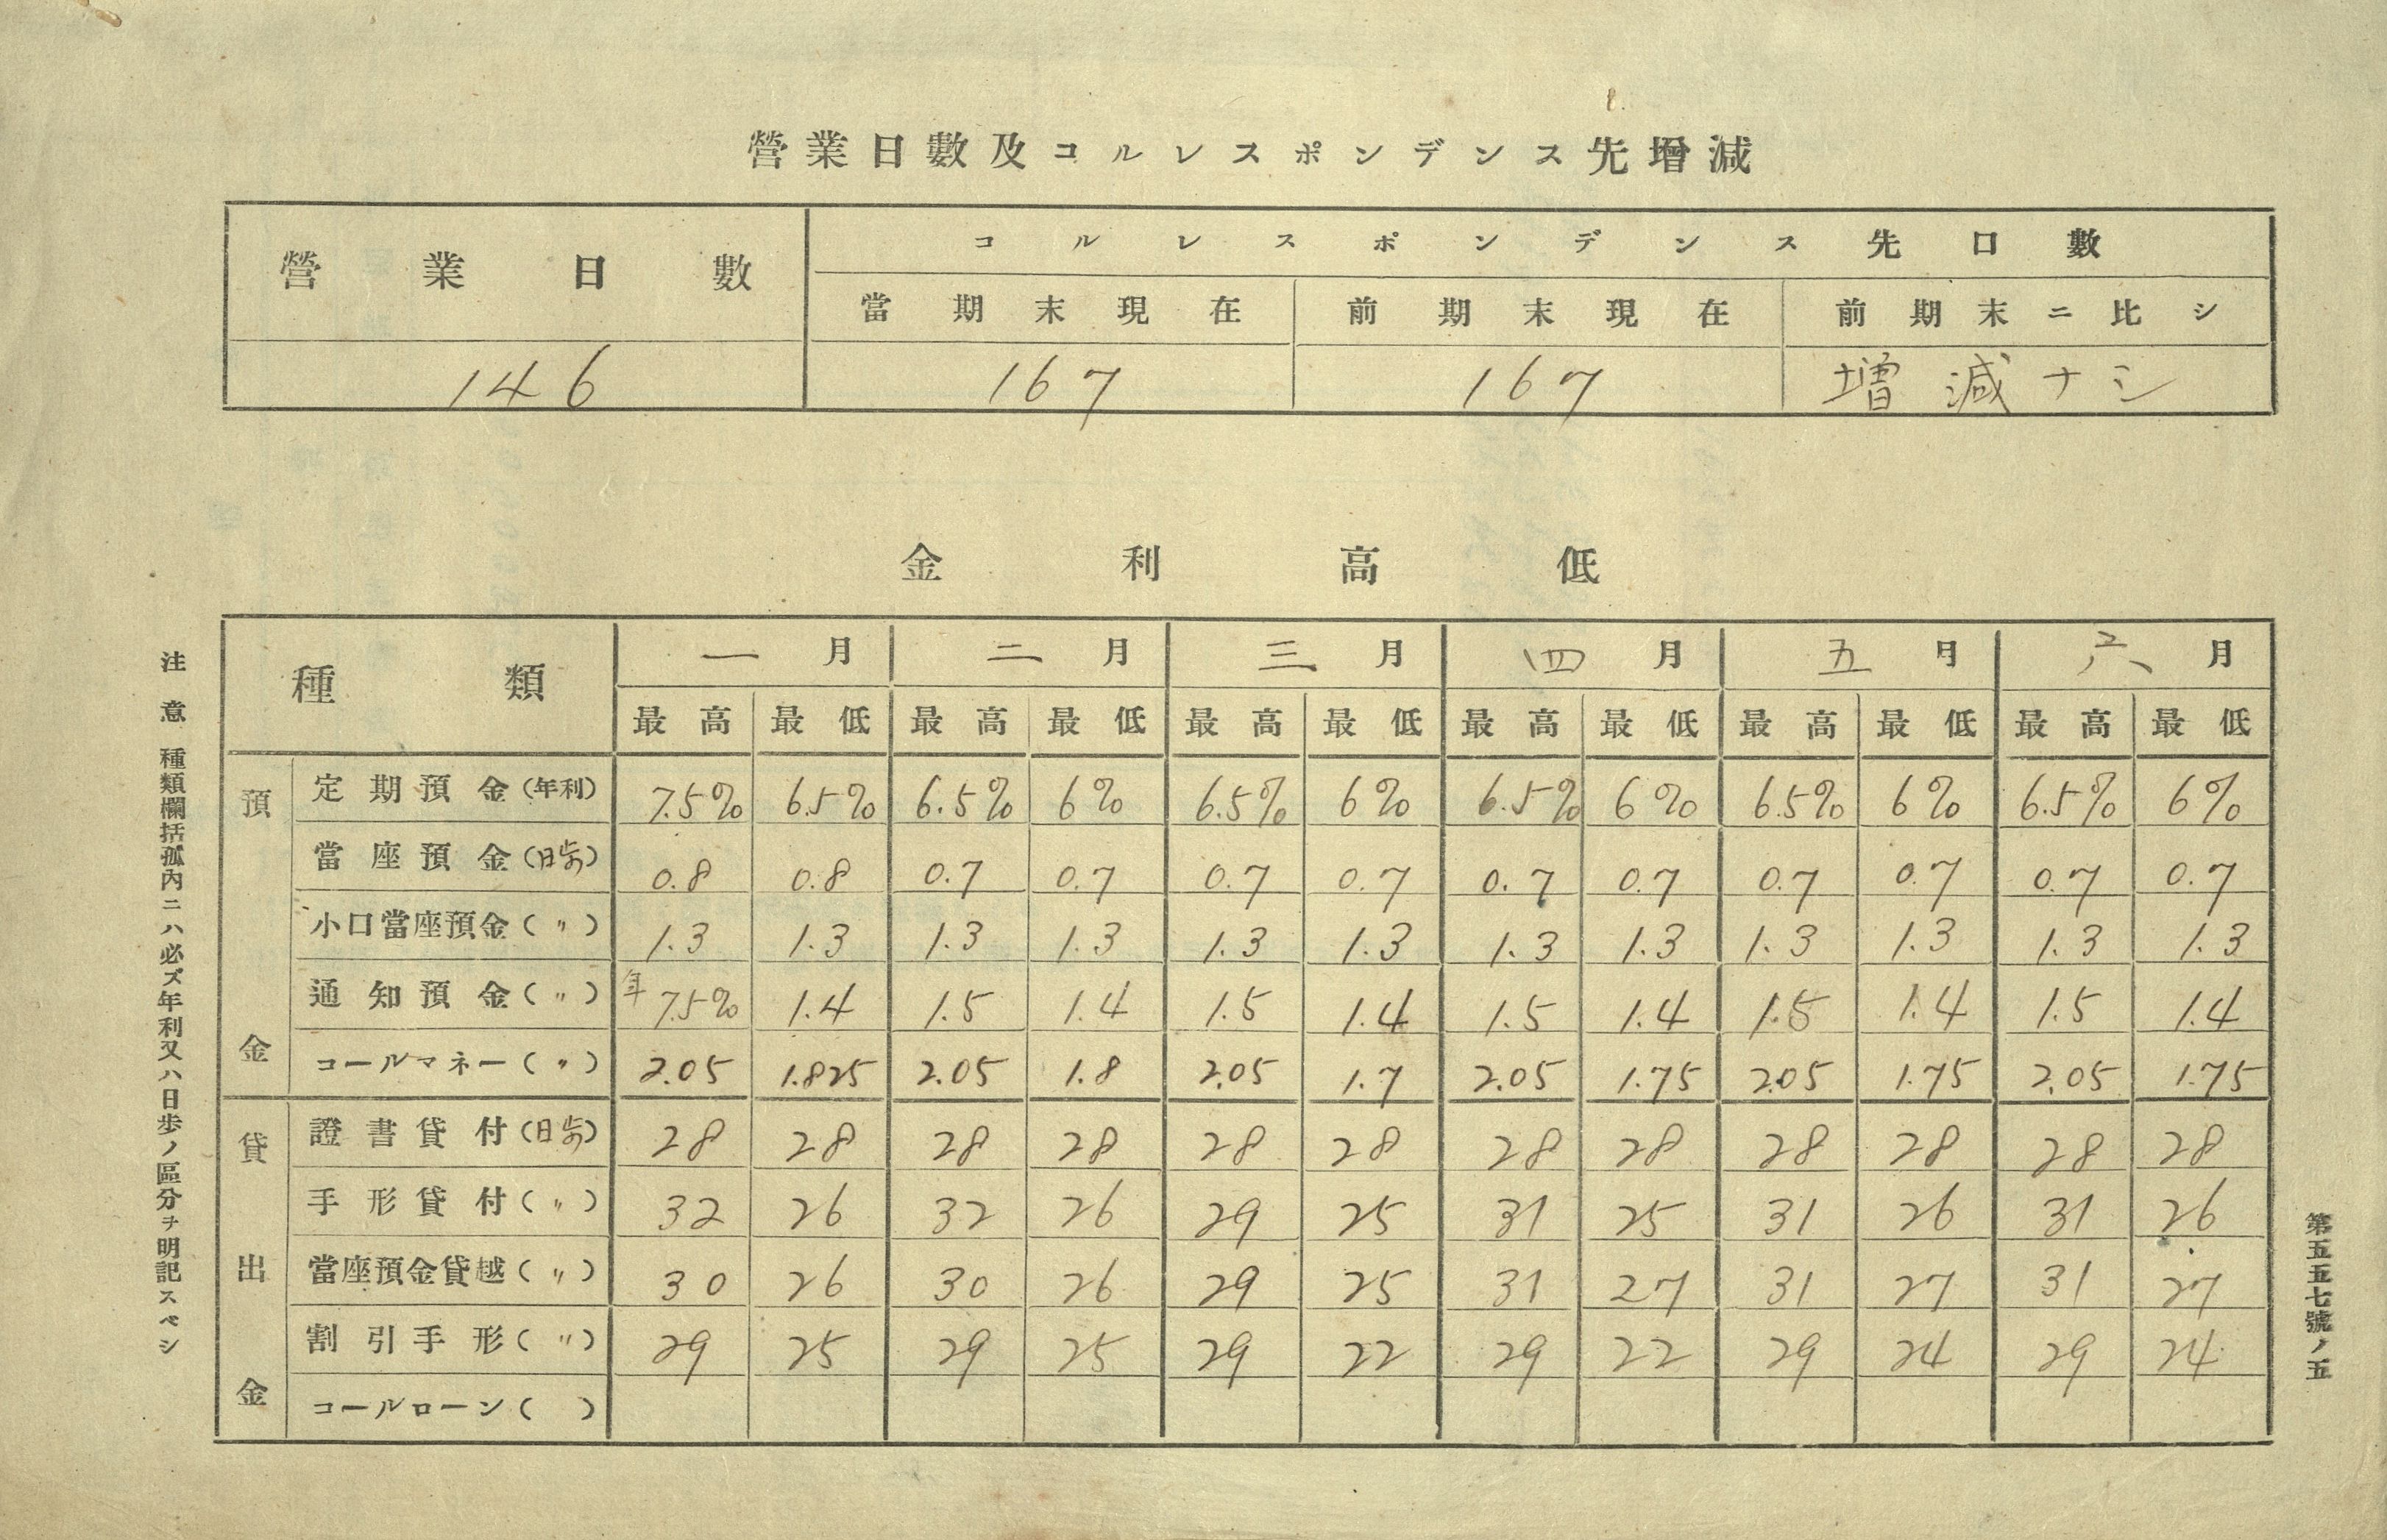 營業日數及コルレスポンデンス先增減
營業日數 コルレスポンデンス先口數
當期末現在 前期末現在 前期末ニ比シ
146 167 167 増減ナシ
金利高低
種類 一月 二月 三月 四月 五月 六月
最高 最低 最高 最低 最高 最低 最高 最低 最高 最低 最高 最低
預金
定期預金(年利) 7.5% 6.5% 6.5% 6% 6.5% 6% 6.5% 6% 6.5% 6% 6.5% 6%
當座預金(日歩) 0.8 0.8 0.7 0.7 0.7 0.7 0.7 0.7 0.7 0.7 0.7 0.7
小口當座預金(〃) 1.3 1.3 1.3 1.3 1.3 1.3 1.3 1.3 1.3 1.3 1.3 1.3
通知預金(〃) 年7.5% 1.4 1.5 1.4 1.5 1.4 1.5 1.4 1.5 1.4 1.5 1.4
コールマネー(〃) 2.05 1.825 2.05 1.8 2.05 1.7 2.05 1.75 2.05 1.75 2.05 1.75
貸出金
證書貸付(日歩) 28 28 28 28 28 28 28 28 28 28 28 28
手形貸付(〃) 32 26 32 26 29 25 31 25 31 26 31 26
當座預金貸越(〃) 30 26 30 26 29 25 31 27 31 27 31 27
割引手形(〃) 29 25 29 25 29 22 29 22 29 24 29 24
コールローン( )
注意 種類欄括孤內ニハ必ズ年利又ハ日歩ノ區分ヲ明記スベシ
第五五七號ノ五